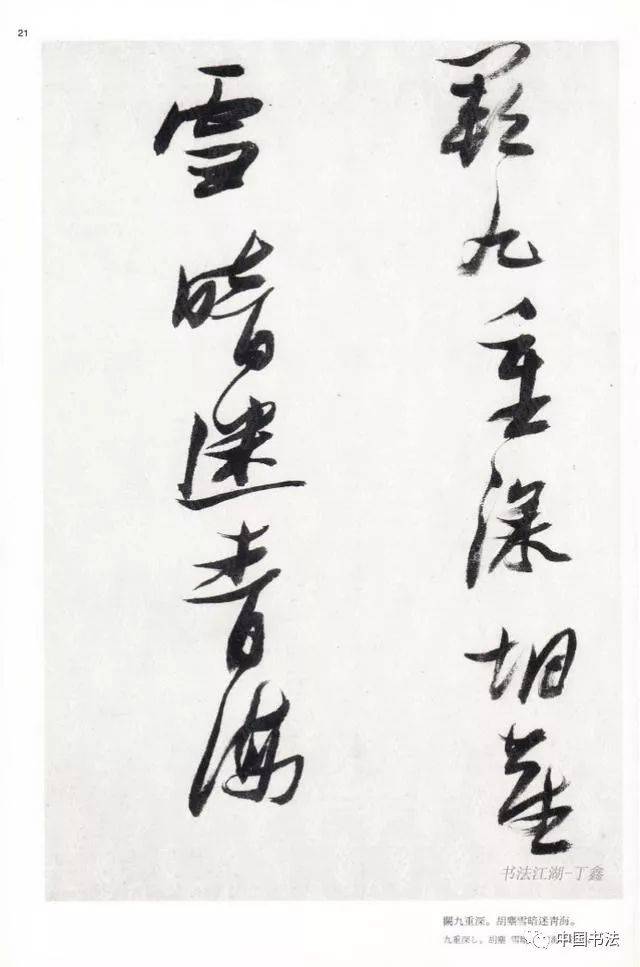 21
闕九重深胡塵
雪暗迷青海
书法江湖-丁鑫
闕九重深。胡塵雪暗迷靑海。
九重深し。胡塵 雪暗
中国书法